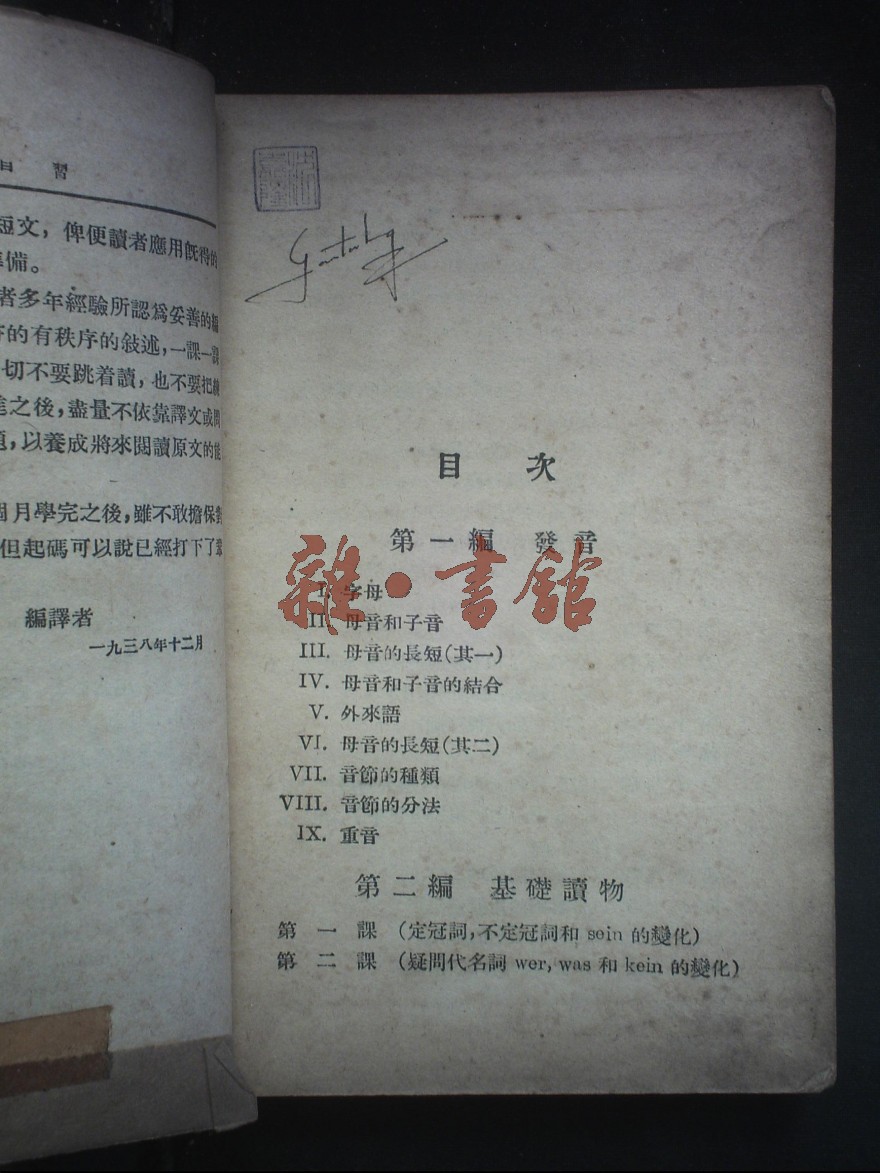 習
短文，俾便讀者應用既得的
備。
者多年經驗所認爲妥善的編
的有秩序的敍述，一課一課
切不要跳着讀，也不要把
之後，盡量不依靠譯文或
，以養成將來閱讀原文的能
個月學完之後，雖不敢擔保
但起碼可以說已經打下了
編譯者
一九三八年十二月
目 次
第一編 發音
I. 字母
II. 母音和子音
III. 母音的長短(其一)
IV. 母音和子音的結合
V. 外來語
VI. 母音的長短(其二)
VII. 音節的種類
VIII. 音節的分法
IX. 重音
第二編 基礎讀物
第一課 (定冠詞，不定冠詞和 sein 的變化)
第二課 (疑問代名詞 wer, was 和 kein 的變化)
雜·書館